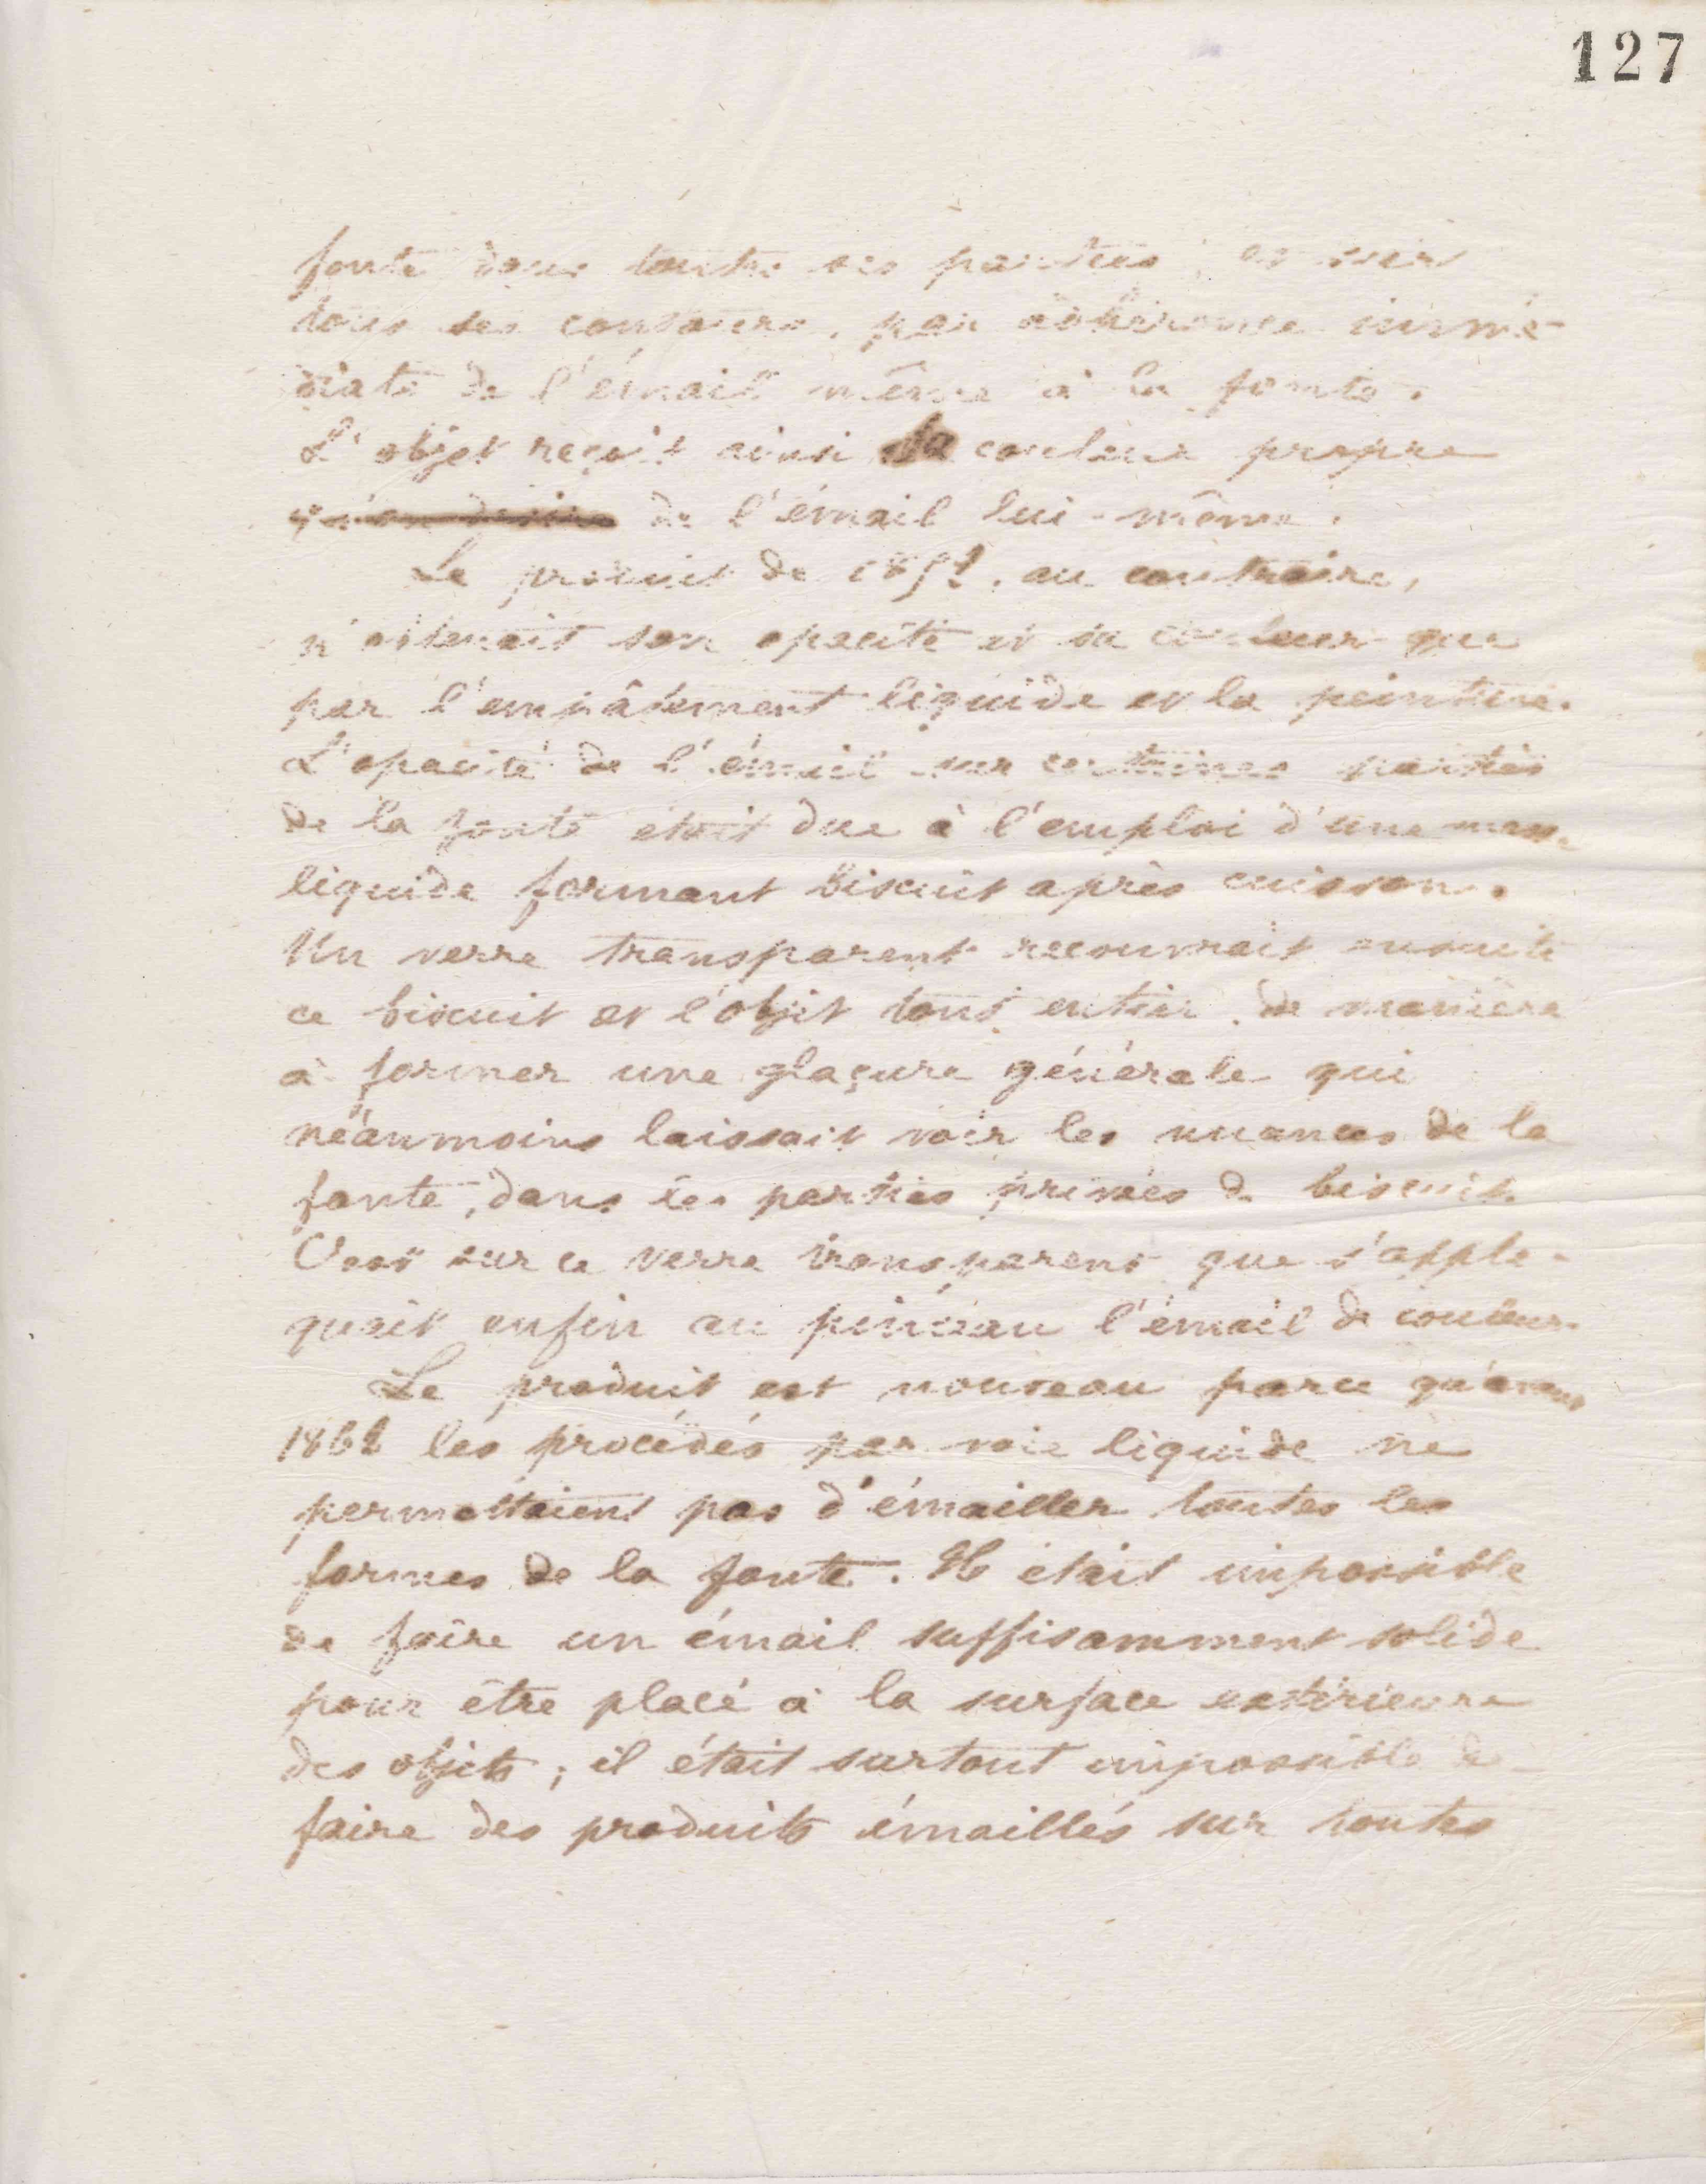 127
fonte dans toutes ses parties, et sur
tous ses contours, par adhérence immé-
diate de l'émail même à la fonte.
L'objet reçoit ainsi la couleur propre
de l'émail lui-même.
Le produit de au contraire,
n'obtenait son opacité et sa couleur que
par l'empâtement liquide et la peinture.
L'opacité de l'émail sur certaines parties
de la fonte était due à l'emploi d'une masse
liquide formant biscuit après cuisson.
Un verre transparent recouvrait ensuite
ce biscuit et l'objet tout entier, de manière
à former une glaçure générale qui
néanmoins laissait voir les nuances de la
fonte, dans les parties privées de biscuit.
C'est sur ce verre transparent que s'appli-
quait enfin au pinceau l'émail de couleur.
Le produit est nouveau parce qu'avant
1862 les procédés par voie liquide ne
permettaient pas d'émailler toutes les
formes de la fonte. Il était impossible
de faire un émail suffisamment solide
pour être placé à la surface extérieure
des objets ; il était surtout impossible de
faire des produits émaillés sur toutes